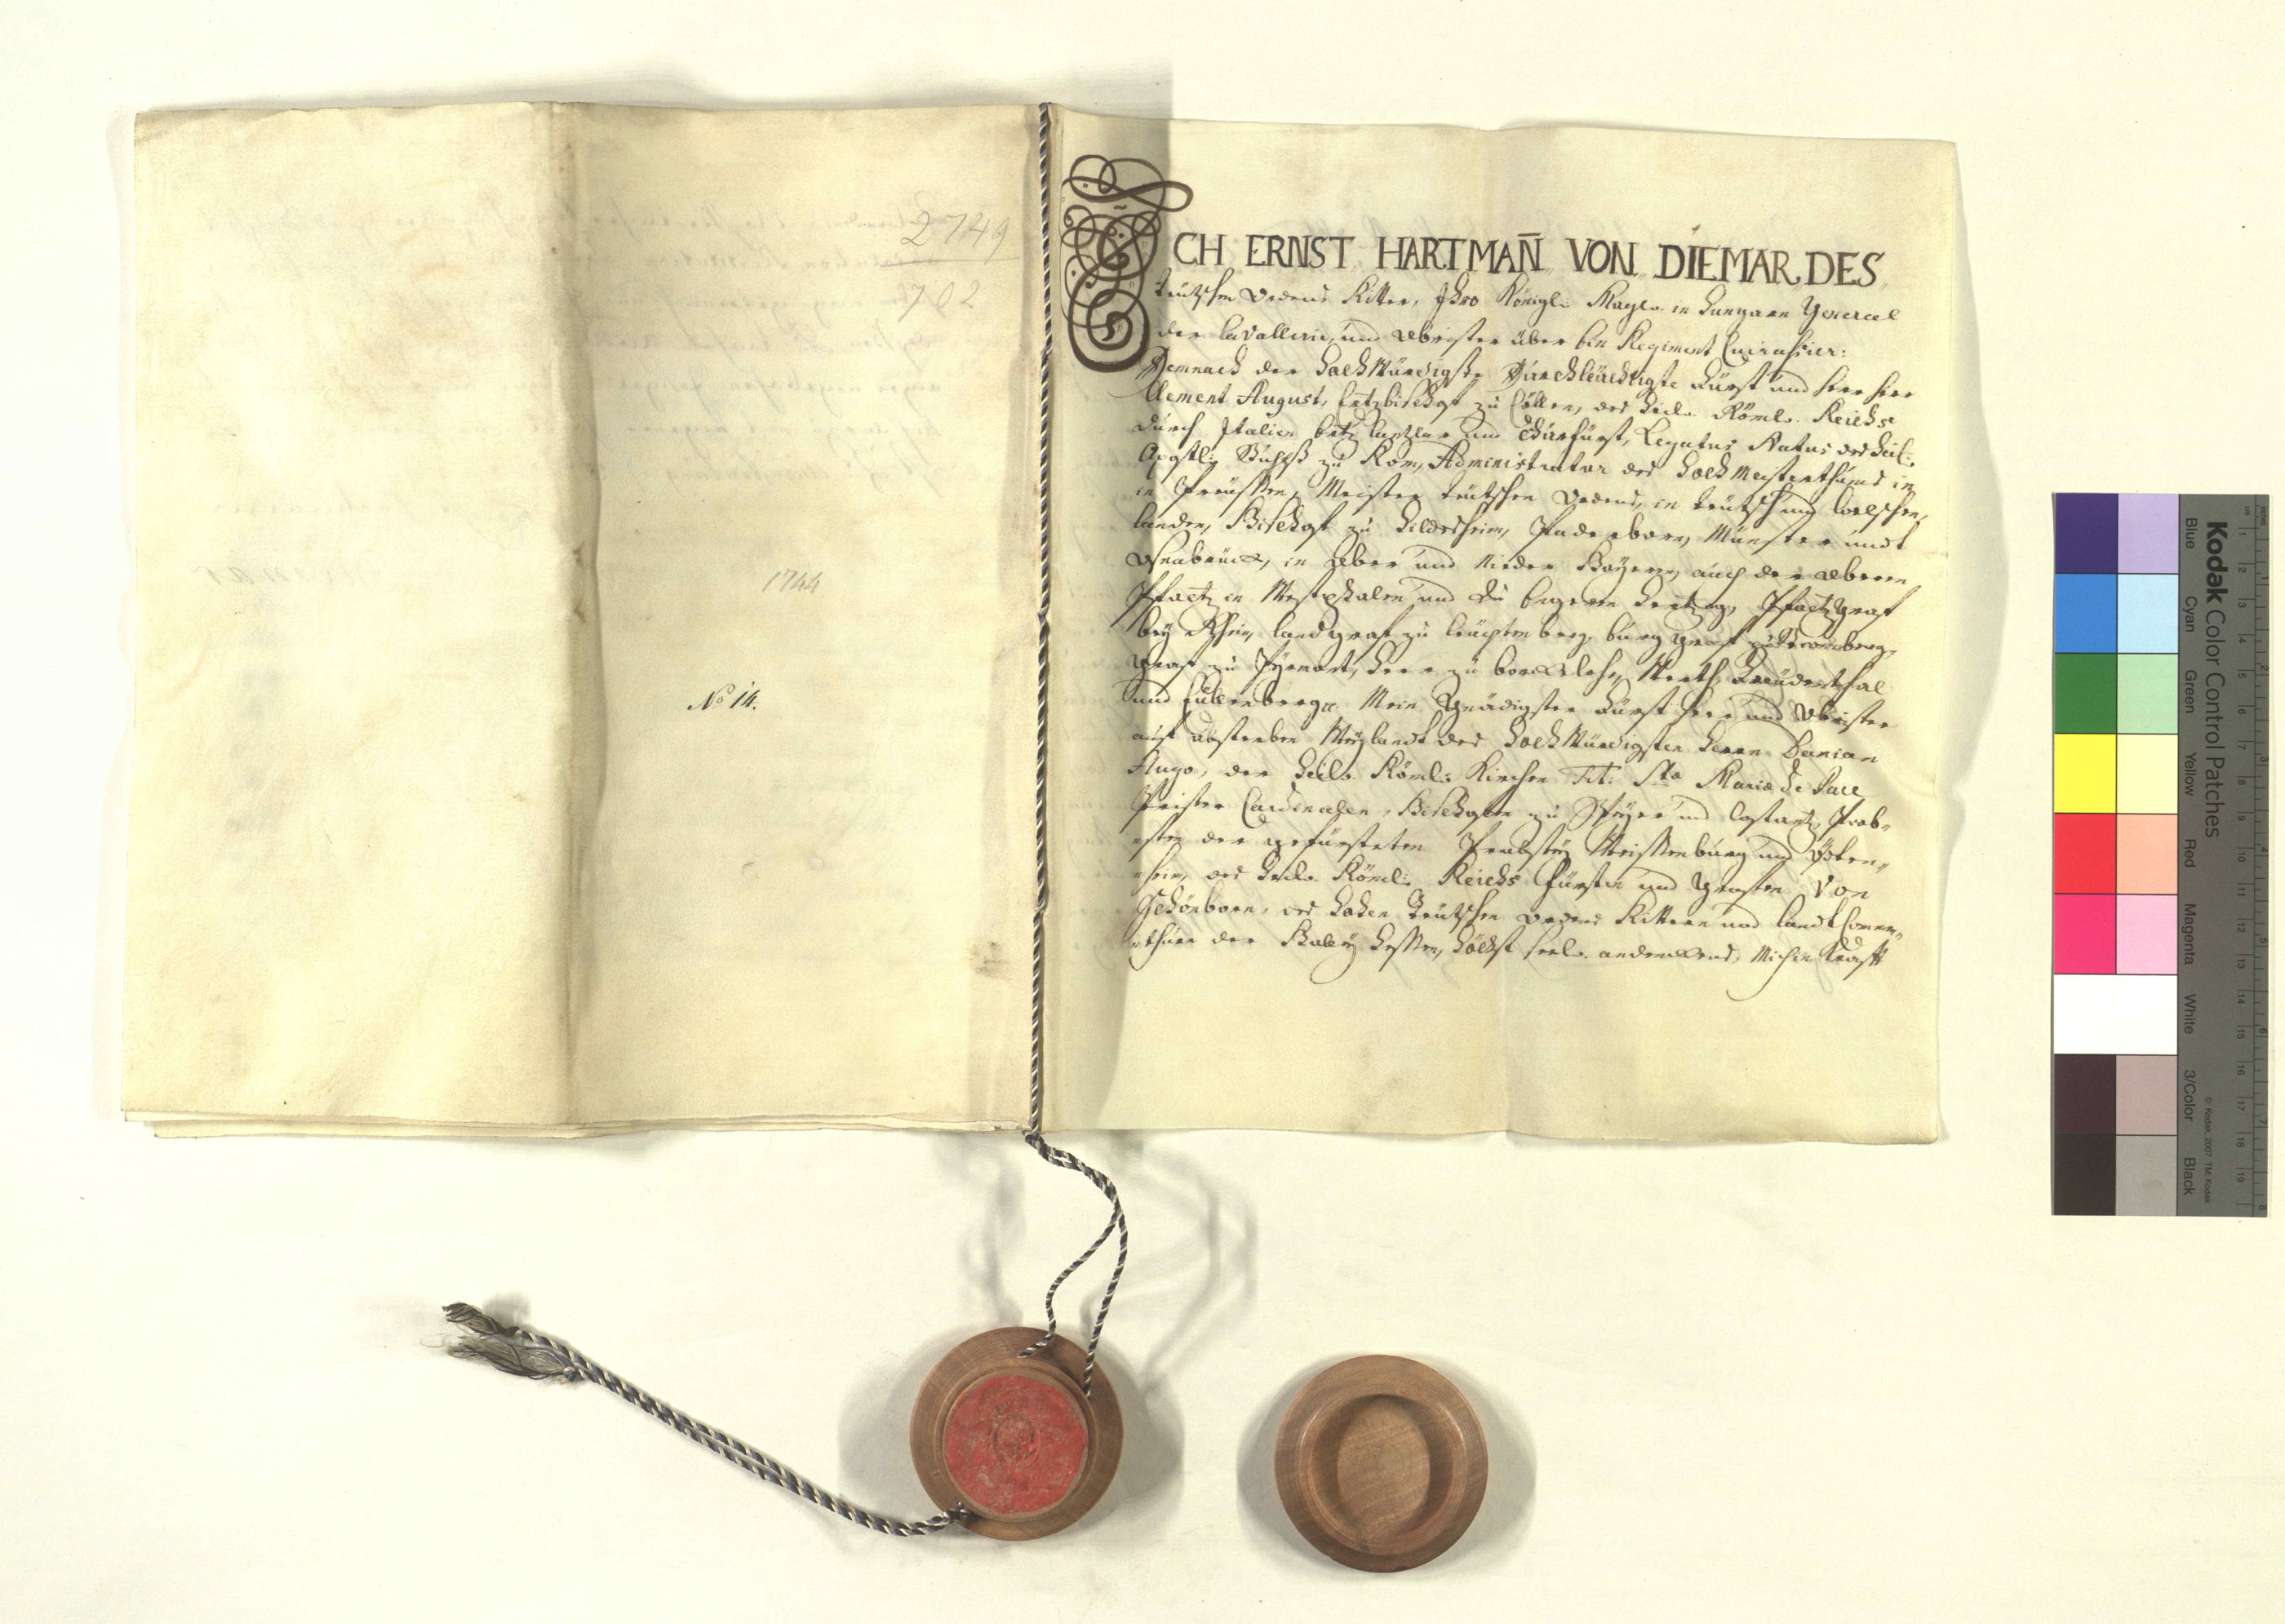 2749
702
1744
No 14.
ICH ERNST HARTMAN̄ VON DIEMAR DES
teutschen Ordens Ritter, Ihro Königl: Mayl. in Hungarn General
der Cavallerie, und Obrister über ein Regiment Cuirassier:
Demnach der HochWürdigste Durchleüchtigste Fürst und Herr Herr
Clement August, Ertzbischof zu Cöllen, des Heil. Röml. Reichs
durch Italien Ertz Cantzler und Churfürst, Legatus Natus des Heil:
Apostl: Stuhlß zu Rom, Administrator des Hochmeisterthumbs in
in Preüssen, Meister teutschen Ordens, in teutsch und Welschen
landen, Bischof zu Hildesheim, Paderborn, Münster undt
Osnabrück, in Ober und Nieder Bayern, auch der Oberen
Pfaltz in Westphalen und zu Engeren Hertzog, Pfaltzgraf
bey Rhein, landgraf zu leüchtenberg, burggraf zu Stromberg,
Graf zu Pyrmont, Herr zu borckelohe, Werth, Freüdenthal
und Eülenberg. Mein Gnädigster Fürst Herr und Obrister
auf absterben Weylandt des HochWürdigsten Herrn Damian
Hugo, der Heil. Röml: Kirchen Tit: Stæ Mariæ de Pace
Priester Cardinalen, Bischofen zu Speyer und Costantz, Prob-
sten der gefürsteten Probstey Weissenburg und Öden-
heim, des Heil. Röml: Reichs Fürsten und Grafen Von
Schönborn, des Hohen Teutschen Ordens Rittern und landt Commen-
thurr der Balley Hessen, Höchst seel. andenckens, Mich in Krafft
Kodak Color Control Patches
Blue Cyan Green Yellow Red Magenta White 3/Color Black
© Kodak, 2007 TM: Kodak